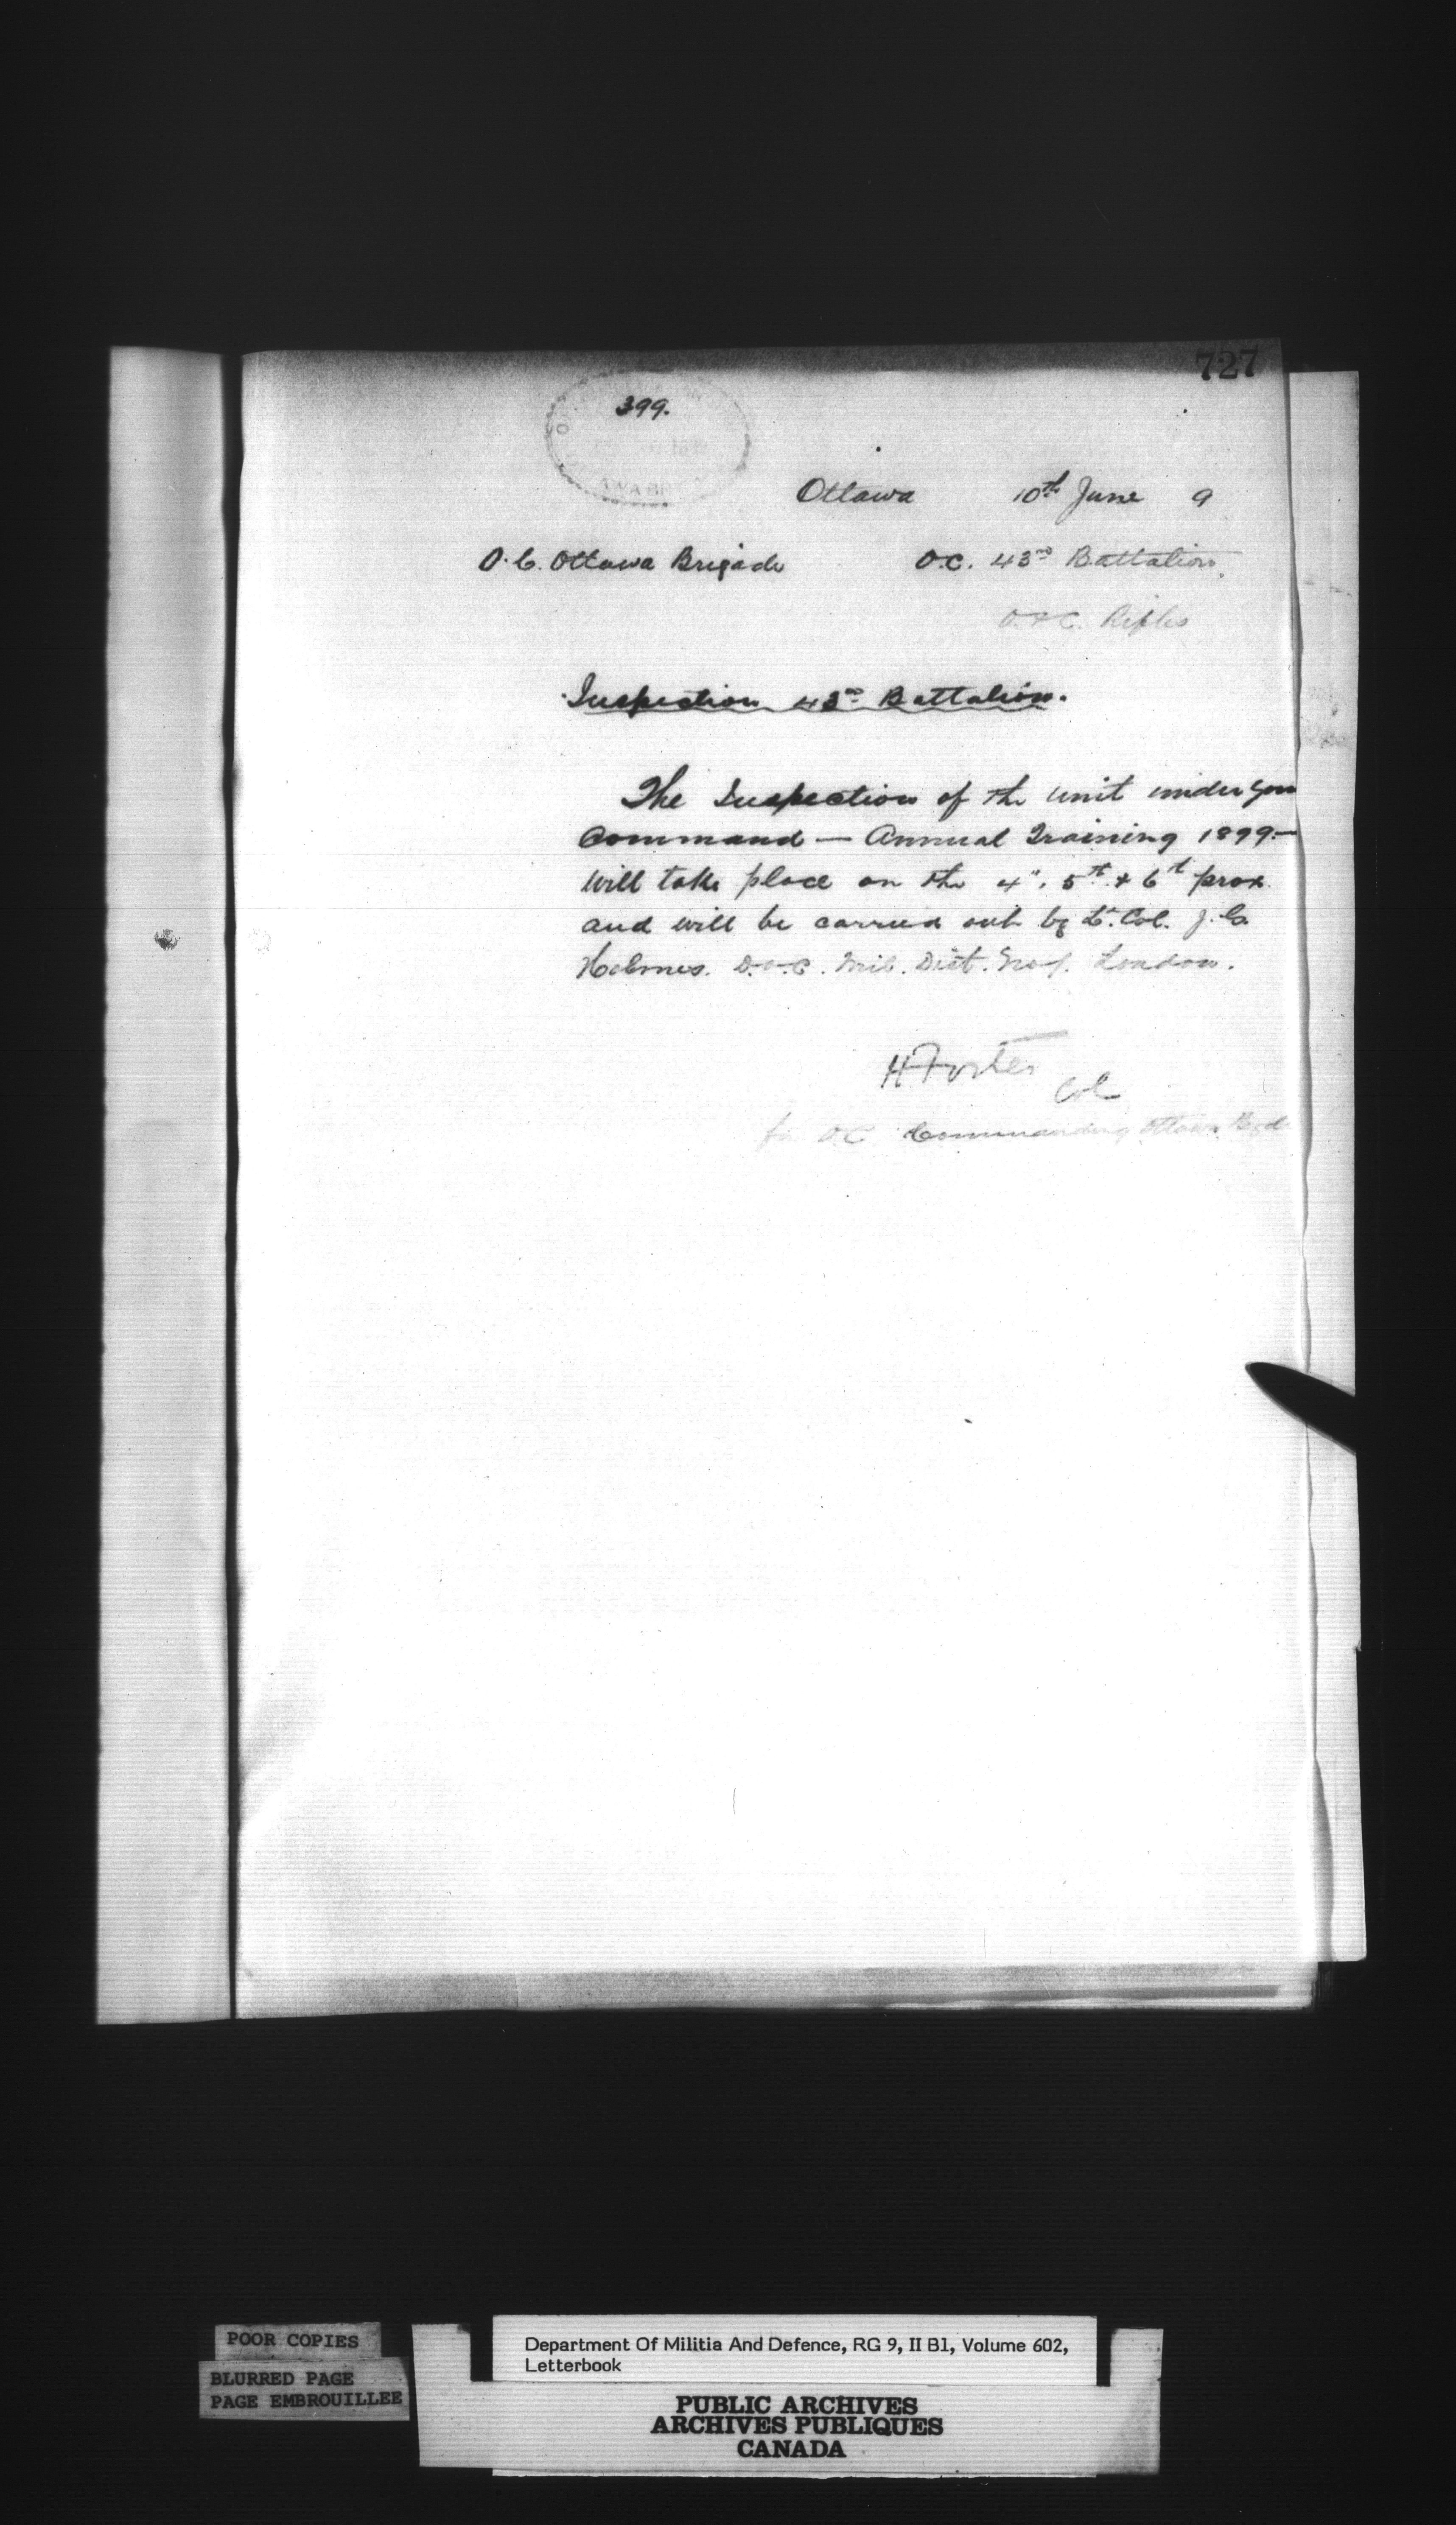 727
399.
AWA BR
Ottawa 10th June 9
O.C. Ottawa Brigade O.C. 43rd Battalion.
O. & C. Rifles
Inspection 43rd Battalion.
The Inspection of the unit under your
Command — Annual Training 1899 —
will take place on the 4", 5th & 6th prox.
and will be carried out by Lt. Col. J. G.
Holmes. D.O.C. Mil. Dist. No 1. London.
H Foster
Col
for OC Commanding Ottawa Bgde
POOR COPIES
BLURRED PAGE
PAGE EMBROUILLEE
Department Of Militia And Defence, RG 9, II B1, Volume 602,
Letterbook
PUBLIC ARCHIVES
ARCHIVES PUBLIQUES
CANADA